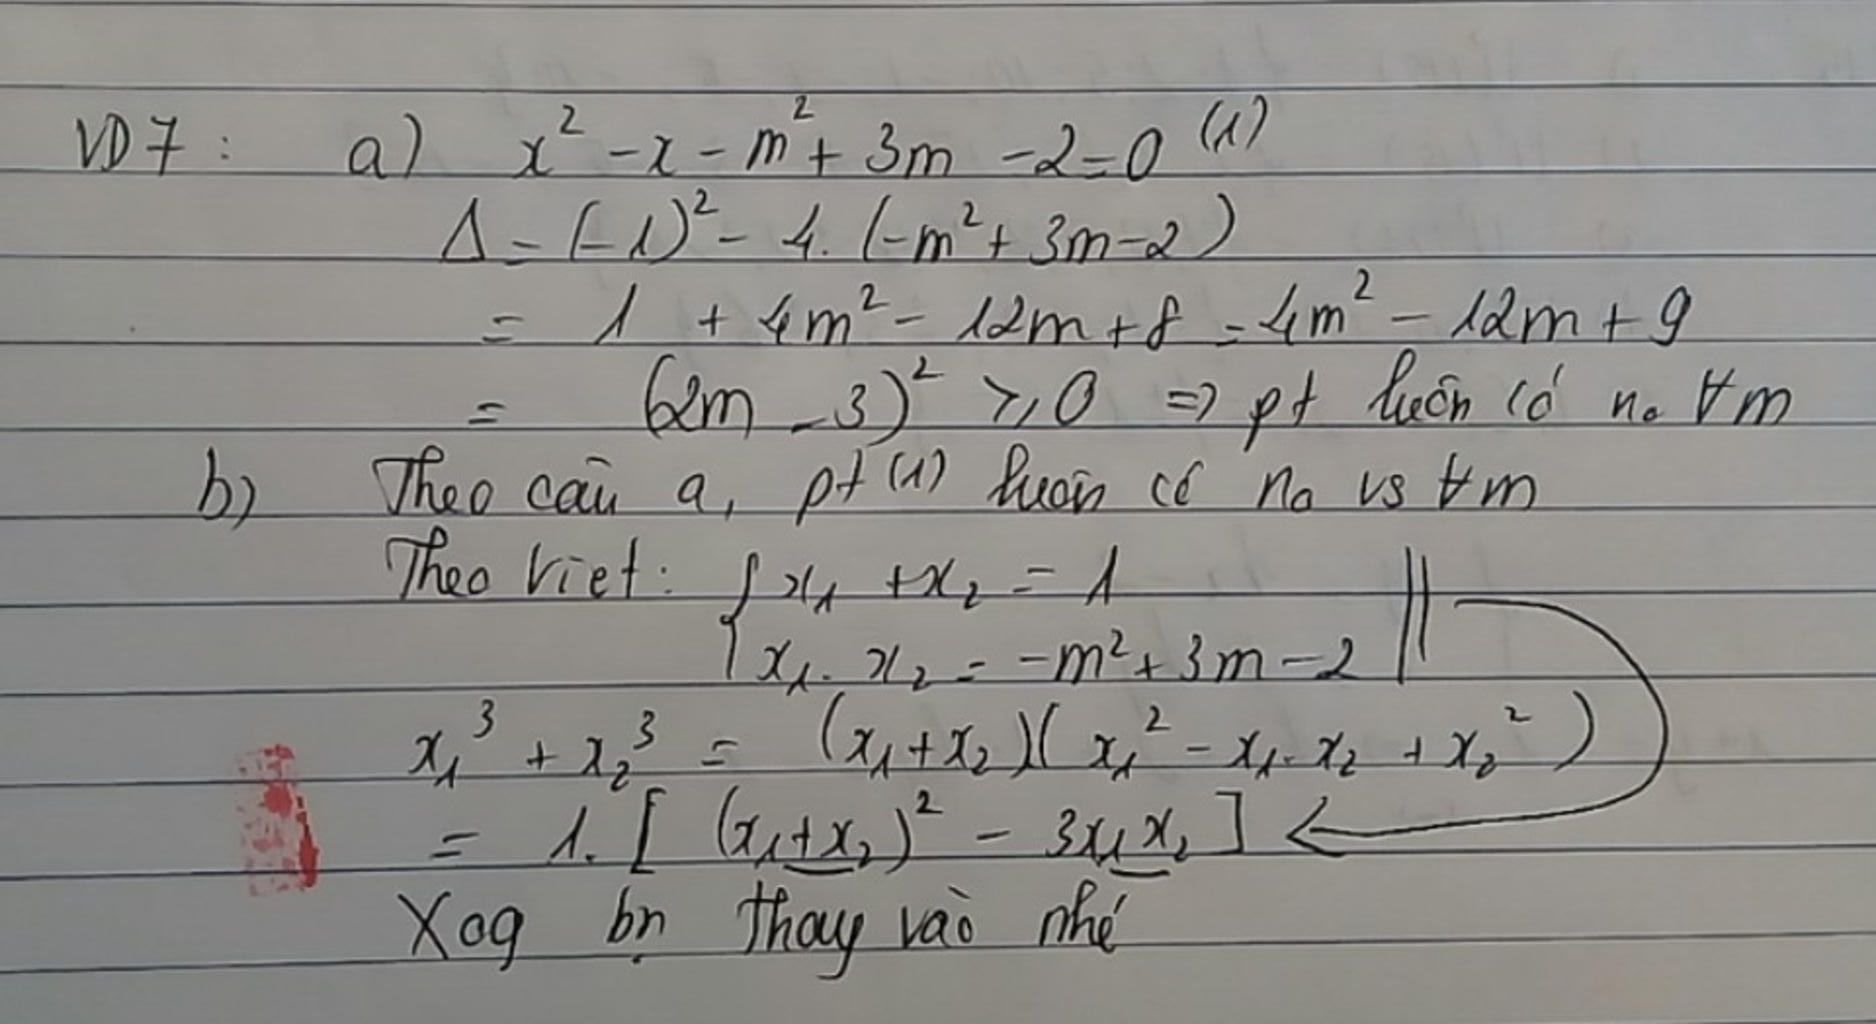 VD7: a) x² - x - m² + 3m - 2 = 0 (1)
Δ = (-1)² - 4. (-m² + 3m - 2)
= 1 + 4m² - 12m + 8 = 4m² - 12m + 9
= (2m - 3)² ≥ 0 => pt luôn có no ∀m
b) Theo câu a, pt (1) luôn có no vs ∀m
Theo Viet: { x₁ + x₂ = 1
x₁. x₂ = -m² + 3m - 2
x₁³ + x₂³ = (x₁ + x₂)(x₁² - x₁. x₂ + x₂²)
= 1. [ (x₁ + x₂)² - 3x₁x₂ ]
Xog bn thay vào nhé